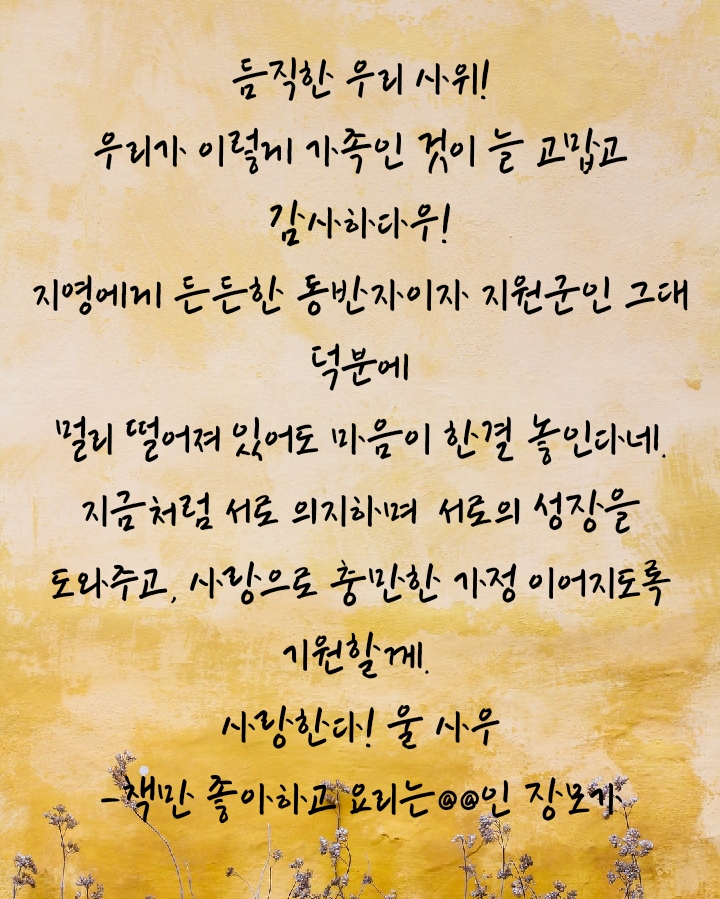 듬직한 우리 사위!
우리가 이렇게 가족인 것이 늘 고맙고
감사하다우!
지영에게 든든한 동반자이자 지원군인 그대
덕분에
멀리 떨어져 있어도 마음이 한결 놓인다네.
지금처럼 서로 의지하며 서로의 성장을
도와주고, 사랑으로 충만한 가정 이어지도록
기원할게.
사랑한다! 울 사우
-책만 좋아하고 요리는@@인 장모가